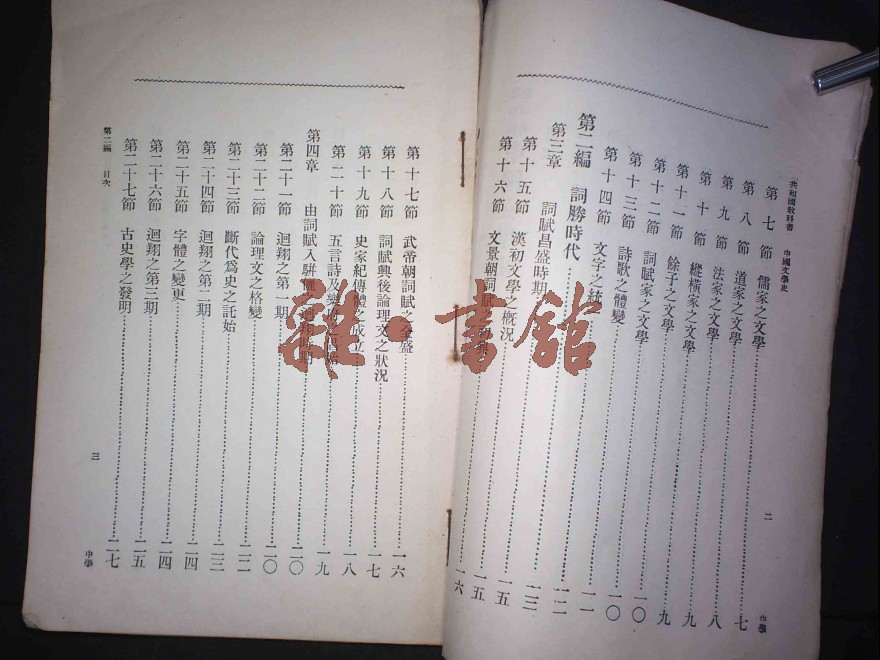 共和國教科書 中國文學史 二 中學
第七節 儒家之文學 七
第八節 道家之文學 八
第九節 法家之文學 九
第十節 縱橫家之文學 九
第十一節 餘子之文學 一〇
第十二節 詞賦家之文學 一〇
第十三節 詩歌之體變 一一
第十四節 文字之統一 一二
第二編 詞勝時代 一三
第三章 詞賦昌盛時期 一五
第十五節 漢初文學之概況 一五
第十六節 文景朝詞賦之 一六
第十七節 武帝朝詞賦之全盛 一六
第十八節 詞賦興後論理文之狀況 一七
第十九節 史家紀傳體之成立 一八
第二十節 五言詩及樂府 一九
第四章 由詞賦入駢 二〇
第二十一節 迴翔之第一期 二〇
第二十二節 論理文之格變 二二
第二十三節 斷代爲史之託始 二三
第二十四節 迴翔之第二期 二四
第二十五節 字體之變更 二四
第二十六節 迴翔之第三期 二五
第二十七節 古史學之發明 二七
第二編 目次 三 中學
雜·書館